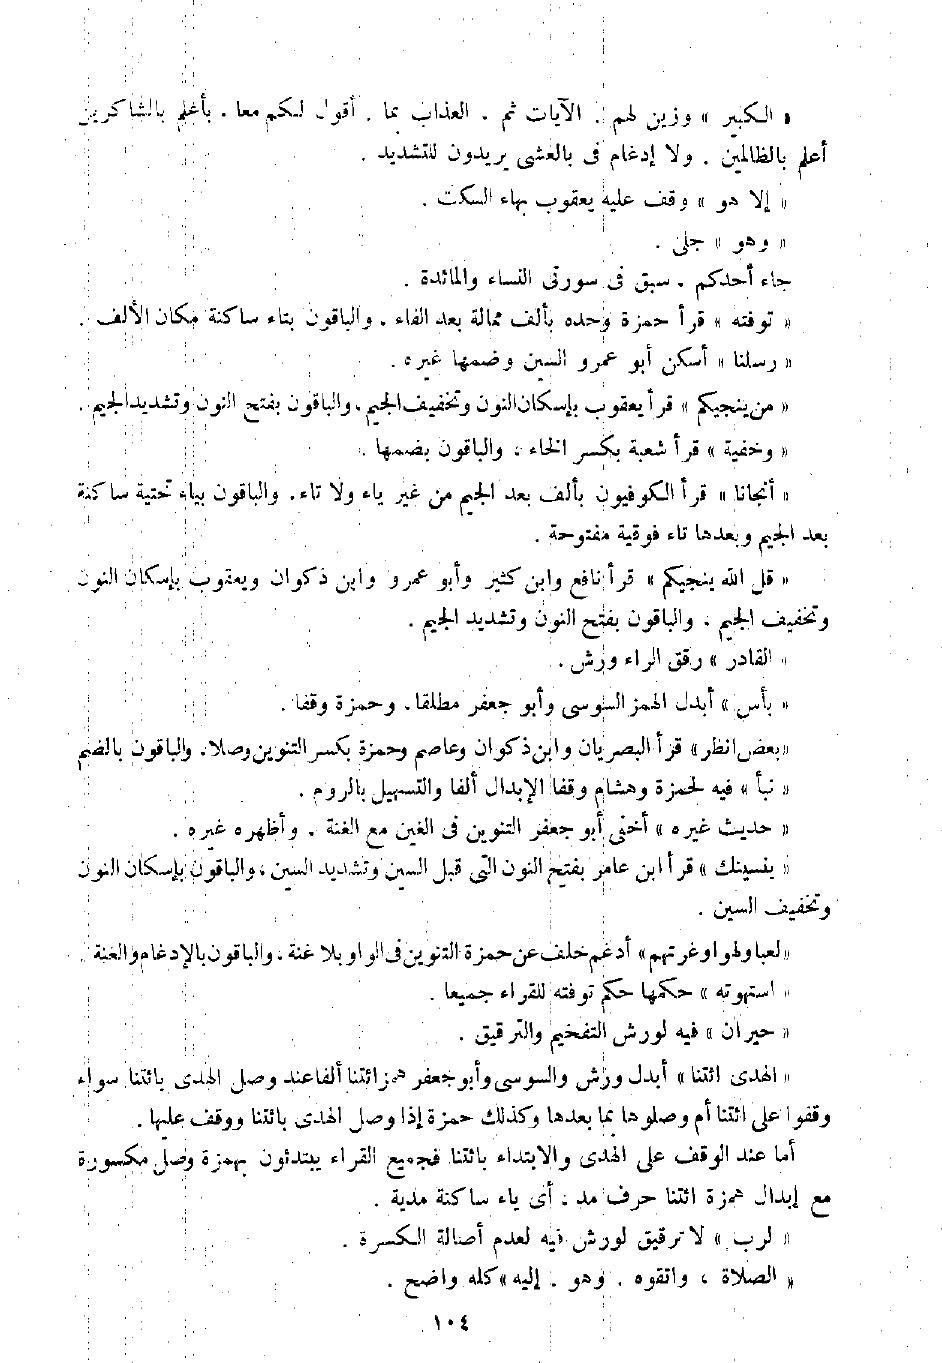 « الكبير » وزين لهم . الآيات ثم . العذاب بما . أقول لكم معا . بأعلم بالشاكرين
أعلم بالظالمين . ولا إدغام فى بالعشى يريدون للتشديد .
« إلا هو » وقف عليه يعقوب بهاء السكت .
« وهو » جلى .
جاء أحدكم . سبق فى سورتى النساء والمائدة .
« توفته » قرأ حمزة وحده بألف ممالة بعد الفاء . والباقون بتاء ساكنة مكان الألف .
« رسلنا » أسكن أبو عمرو السين وضمها غيره .
« من ينجيكم » قرأ يعقوب بإسكان النون وتخفيف الجيم . والباقون بفتح النون وتشديد الجيم .
« وخفية » قرأ شعبة بكسر الخاء ، والباقون بضمها .
« أنجانا » قرأ الكوفيون بألف بعد الجيم من غير ياء ولا تاء . والباقون بياء تحتية ساكنة
بعد الجيم وبعدها تاء فوقية مفتوحة .
« قل الله ينجيكم » قرأ نافع وابن كثير وأبو عمرو وابن ذكوان ويعقوب بإسكان النون
وتخفيف الجيم ، والباقون بفتح النون وتشديد الجيم .
« القادر » رقق الراء ورش .
« بأس » أبدل الهمز السوسى وأبو جعفر مطلقا . وحمزة وقفا .
« بعض انظر » قرأ البصريان وابن ذكوان وعاصم وحمزة بكسر التنوين وصلا . والباقون بالضم
« نبأ » فيه لحمزة وهشام وقفا الإبدال ألفا والتسهيل بالروم .
« حديث غيره » أخفى أبو جعفر التنوين فى الغين مع الغنة . وأظهره غيره .
« ينسينك » قرأ ابن عامر بفتح النون التى قبل السين وتشديد السين ، والباقون بإسكان النون
وتخفيف السين .
« لعبا ولهوا وغرتهم » أدغم خلف عن حمزة التنوين فى الواو بلا غنة ، والباقون بالإدغام والغنة .
« استهوته » حكمها حكم توفته للقراء جميعا .
« حيران » فيه لورش التفخيم والترقيق .
« الهدى ائتنا » أبدل ورش والسوسى وأبو جعفر همز ائتنا ألفا عند وصل الهدى بائتنا سواء
وقفوا على ائتنا أم وصلوها بما بعدها وكذلك حمزة إذا وصل الهدى بائتنا ووقف عليها .
أما عند الوقف على الهدى والابتداء بائتنا فجميع القراء يبتدئون بهمزة وصل مكسورة
مع إبدال همزة ائتنا حرف مد ، أى ياء ساكنة مدية .
« لرب » لا ترقيق لورش فيه لعدم أصالة الكسرة .
« الصلاة ، واتقوه . وهو . إليه » كله واضح .
١٠٤